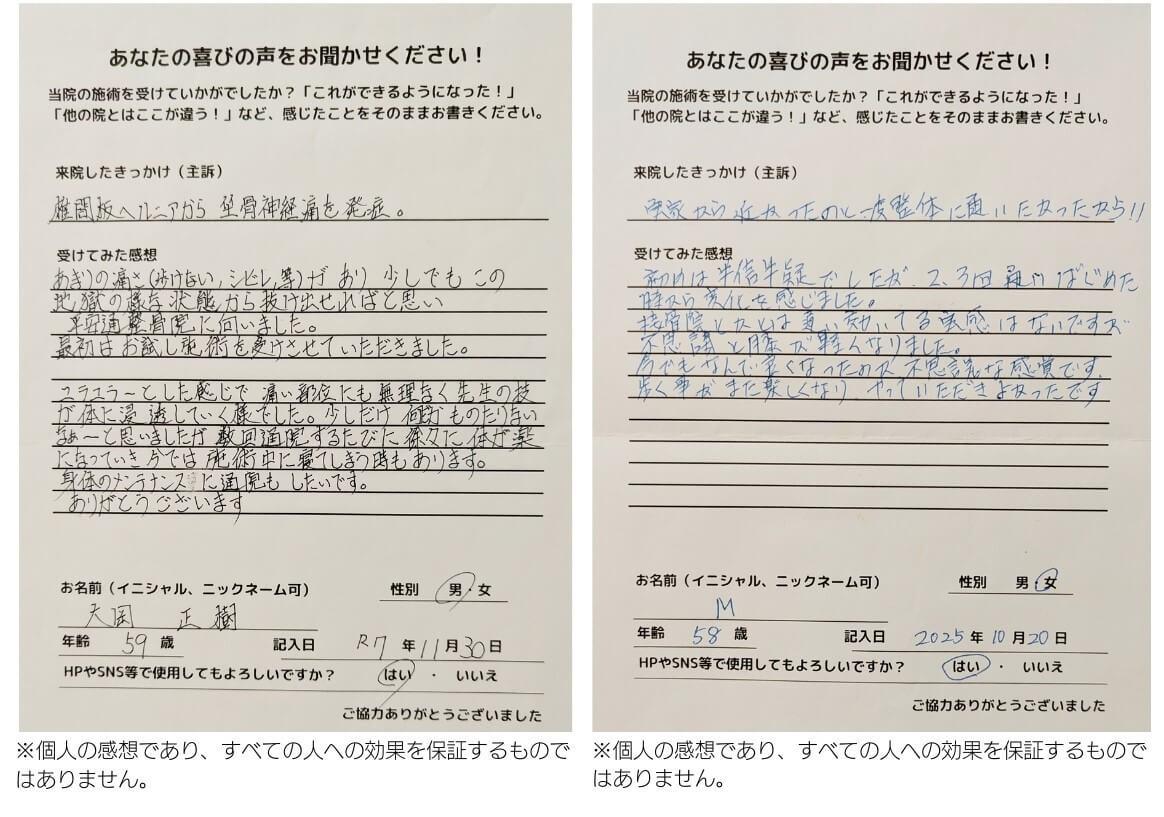 あなたの喜びの声をお聞かせください！
当院の施術を受けていかがでしたか？「これができるようになった！」
「他の院とはここが違う！」など、感じたことをそのままお書きください。
来院したきっかけ（主訴）
椎間板ヘルニアから 坐骨神経痛を発症。
受けてみた感想
あまりの痛さ(歩けない，シビレ,等)が あり 少しでも この
地獄の様な状態から抜け出せればと思い
平安通整骨院に伺いました。
最初は お試し施術を受けさせていただきました。
ユラユラ〜とした感じで 痛い部位にも無理なく先生の技
が体に浸透していく様でした。少しだけ 何か ものたりない
なぁ〜と思いましたが 数回通院するたびに 徐々に 体が楽
になっていき 今では 施術中に寝てしまう時もあります。
身体のメンテナンスに通院も したいです。
ありがとうございます
お名前（イニシャル、ニックネーム可）
性別 男・女
大岡 正樹
年齢 59 歳 記入日 R7 年 11 月 30 日
HPやSNS等で使用してもよろしいですか？ はい ・ いいえ
ご協力ありがとうございました
※個人の感想であり、すべての人への効果を保証するもので
はありません。
あなたの喜びの声をお聞かせください！
当院の施術を受けていかがでしたか？「これができるようになった！」
「他の院とはここが違う！」など、感じたことをそのままお書きください。
来院したきっかけ（主訴）
実家から近かったのと一度整体に通いたかったから!!
受けてみた感想
初めは半信半疑でしたが、2、3回 通いはじめた
時から変化を感じました。
接骨院とかとは違い効いてる実感はないですが
不思議と膝が軽くなりました。
今でもなんで良くなったのか不思議な感覚です。
歩く事がまた楽しくなり、やっていただきよかったです
お名前（イニシャル、ニックネーム可）
性別 男・女
M
年齢 58 歳 記入日 2025 年 10 月 20 日
HPやSNS等で使用してもよろしいですか？ はい ・ いいえ
ご協力ありがとうございました
※個人の感想であり、すべての人への効果を保証するもので
はありません。